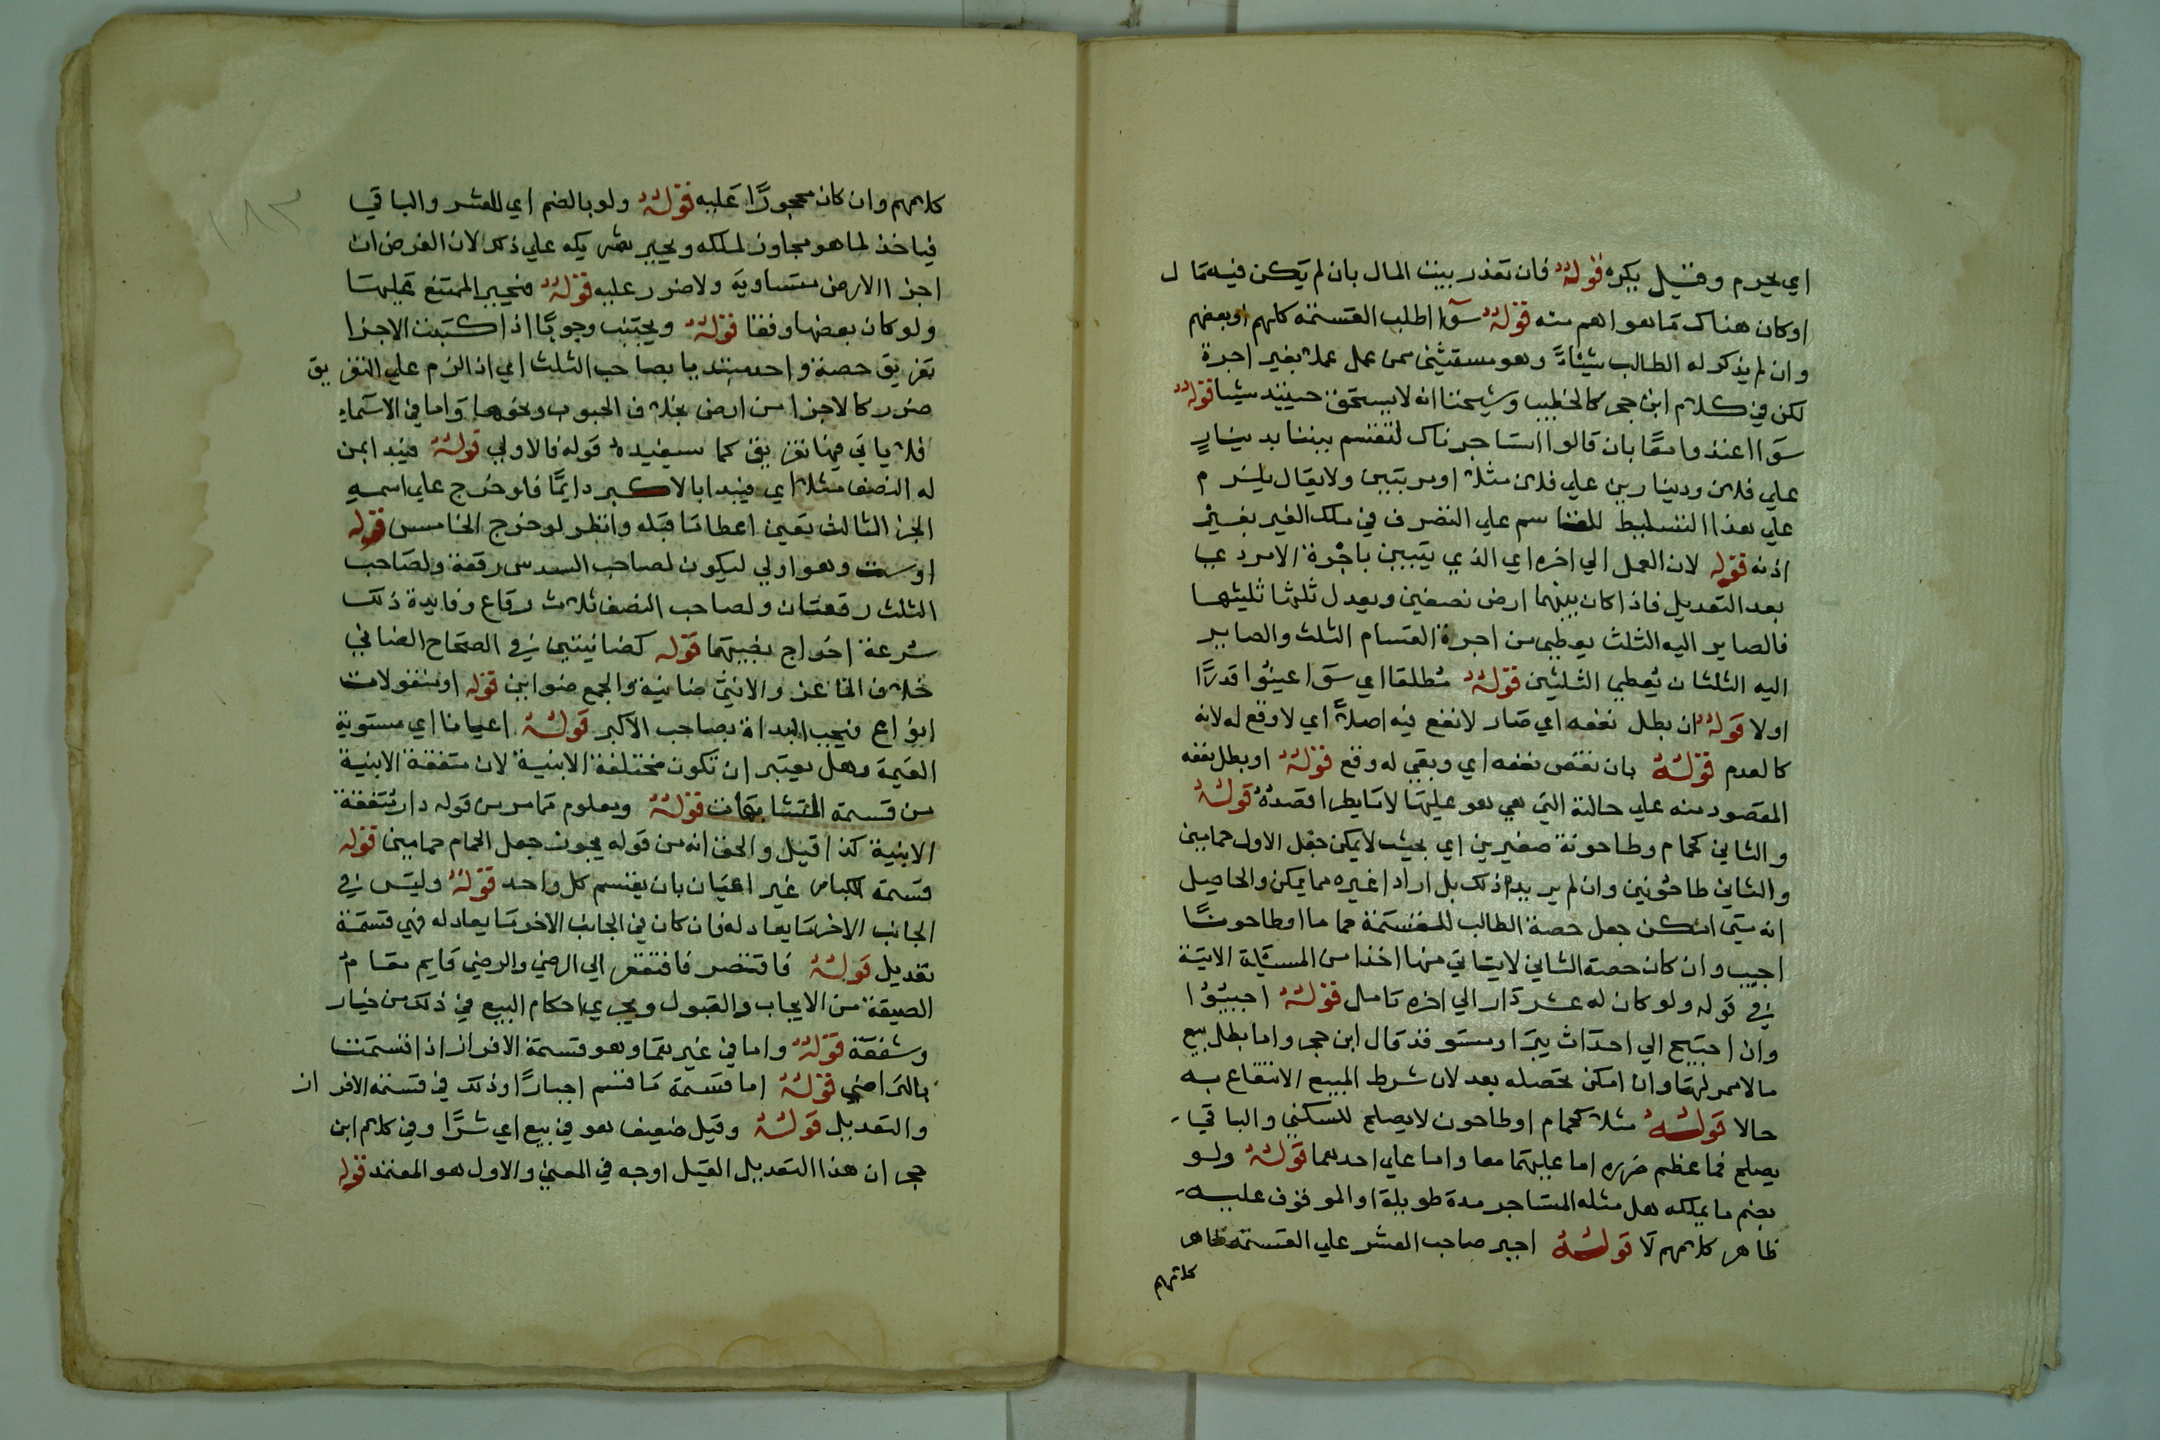 اي يحرم وقيل يكره قوله فان تعذر بيت المال بان لم يكن فيه مال
او كان هناك ما هو اهم منه قوله سوآ اطلب القسمة كلهم او بعضهم
وان لم يذكر له الطالب شيئا وهو مستثنى ممن عمل عملا بغير اجرة
لكن في كلام ابن حجر كالخطيب وشيخنا انه لا يستحق حينيذ شيئا قوله
سوا اعقدوا معا بان قالوا استاجرناك لتقسم بيننا بدينارٍ
علي فلان ودينارين علي فلان مثلا او مرتبين ولا يقال يلزم
علي هذا التسليط للقاسم علي التصرف في ملك الغير بغير
اذنه قوله لان العمل الي اخره اي الذي يتبين باجرة الامر دعي
بعد التعديل فاذا كان بينهما ارض نصفين ويعدل ثلثها ثلثيها
فالصاير اليه الثلث يعطي من اجرة القسام الثلث والصاير
اليه الثلثان يعطي الثلثين قوله مطلقا اي سوا عينوا قدرًا
اولا قوله ان بطل نفعه اي صار لا نفع فيه اصلا اي لا وقع له لانه
كالعدم قوله بان نقص نفعه اي وبقي له وقع قوله او بطل نفعه
المقصود منه علي حالته التي هي هو عليها لا ما يطرا قصده قوله
والثاني كحمام وطاحونة صغيرين اي بحيث لا يمكن جعل الاول حمامين
والثاني طاحونين وان لم يرد ذلك بل اراد غيره مما يمكن والحاصل
انه متي امكن جعل حصة الطالب للقسمة حماما او طاحونًا
اجيب وان كان حصة الثاني لا يتاتي منها اخذا من المسئلة الاتية
في قوله ولو كان له عشر دار الي اخره تامل قوله اجيبوا
وان احتيج الي احداث بيرا ومستوقد قال ابن حجر واما بطل بيع
ما لا ممر لها وان امكن تحصله بعد لان شرط المبيع الانتفاع به
حالا قوله مثلا كحمام او طاحون لا يصلح للسكني والباقي
يصلح فما عظم ضرره اما عليهما معا واما علي احدهما قوله ولو
بضم ما يملكه هل مثله المستاجر مدة طويلة او الموقوف عليه
ظاهر كلامهم لا قوله اجبر صاحب العشر علي القسمة ظاهر
كلامهم
كلامهم وان كان محجورًا عليه قوله ولو بالضم اي للعشر والباقي
فياخذ لما هو مجاور لملكه ويجبر شريكه علي ذلك لان الفرض ان
اجزا الارض متساوية ولا ضرر عليه قوله فيجبر الممتنع عليها
ولو كان بعضها وقفا قوله ويجتنب وجوبًا اذا كتبت الاجزا
تفريق حصة واحد يبتدي بصاحب الثلث اي اذا لزم علي التفريق
ضرر كالاجزا من ارض بخلاف الحبوب ونحوها واما في الاسماءِ
فلا ياتي فيها تفريق كما سيفيده قوله فالاولي قوله فيبدا بمن
له النصف مثلا اي فيبدا بالاكبر دايمًا فلو خرج علي اسمهِ
الجز الثالث يتعين اعطا ما قبله وانظر لو خرج الخامس قوله
او ست وهو اولي ليكون لصاحب السدس رقعة ولصاحب
الثلث رقعتان ولصاحب النصف ثلاث رقاع وفايدة ذلك
سرعة اخراج نصيبهما قوله كضانيتين في الصحاح الضاني
خلاف الماعز والانثي ضانية والجمع ضواين قوله او منقولات
انواع فيجب البداة بصاحب الاكبر قوله اعيانا اي مستوية
القيمة وهل يعتبر ان تكون مختلفة الابنية لان متفقة الابنية
من قسمة المتشابهات قوله ومعلوم مما مر من قوله دار متفقة
الابنية كذا قيل والحق انه من قوله يجوز جعل الحمام حمامين قوله
قسمة غير اعيان بان يقسم كل واحد قوله وليس في
الجانب الاخر ما يعادله فان كان في الجانب الاخر ما يعادله فهي قسمة
تعديل قوله فاقتصر فافتقر الي الرضي والرضي قايم مقام
الصيغة من الايجاب والقبول ويجري احكام البيع في ذلك من خيار
وشفعة قوله واما في غيرهما وهو قسمة الافراز اذا قسمت
بالتراضي قوله اما قسمة ما قسم اجبارًا وذلك في قسمة الافراز
والتعديل قوله وقيل ضعيف هو في بيع اي شرًا وفي كلام ابن
حجر ان هذا التعديل القيل اوجه في المعني والاول هو المعتمد قوله
١٨٣